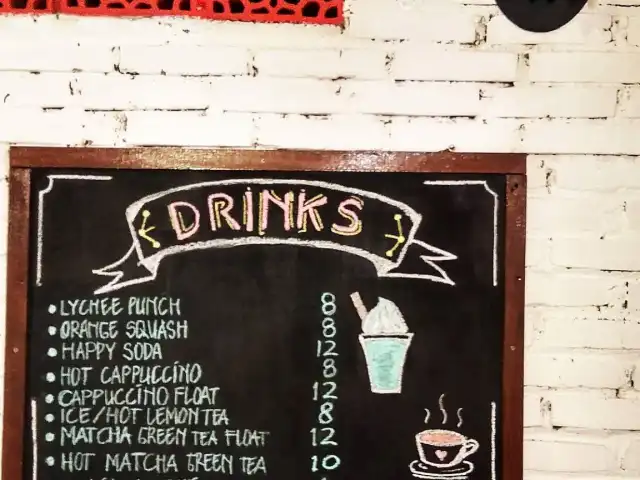 DRINKS
• LYCHEE PUNCH 8
• ORANGE SQUASH 8
• HAPPY SODA 12
• HOT CAPPUCCINO 8
• CAPPUCCINO FLOAT 12
• ICE/HOT LEMON TEA 8
• MATCHA GREEN TEA FLOAT 12
• HOT MATCHA GREEN TEA 10